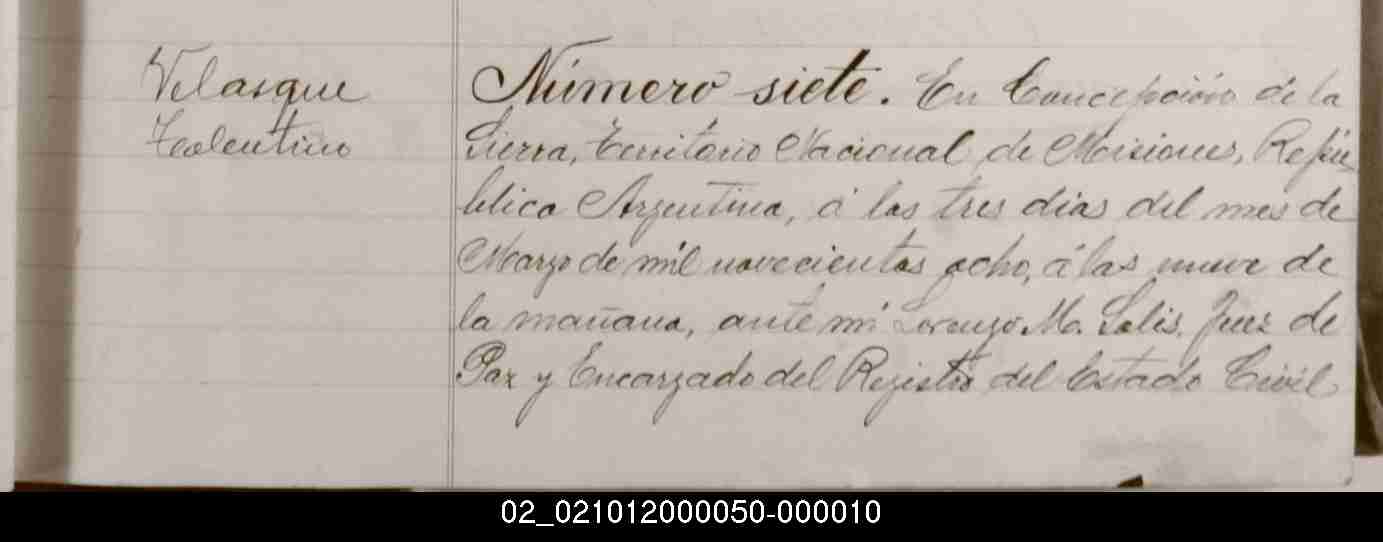 Velasque
Tolentino
Número siete. En Concepción de la
Sierra, Territorio Nacional de Misiones, Repú-
blica Argentina, á los tres dias del mes de
Marzo de mil novecientos ocho, á las nueve de
la mañana, ante mi Lorenzo M. Solis, Juez de
Paz y Encargado del Registro del Estado Civil
02_021012000050-000010